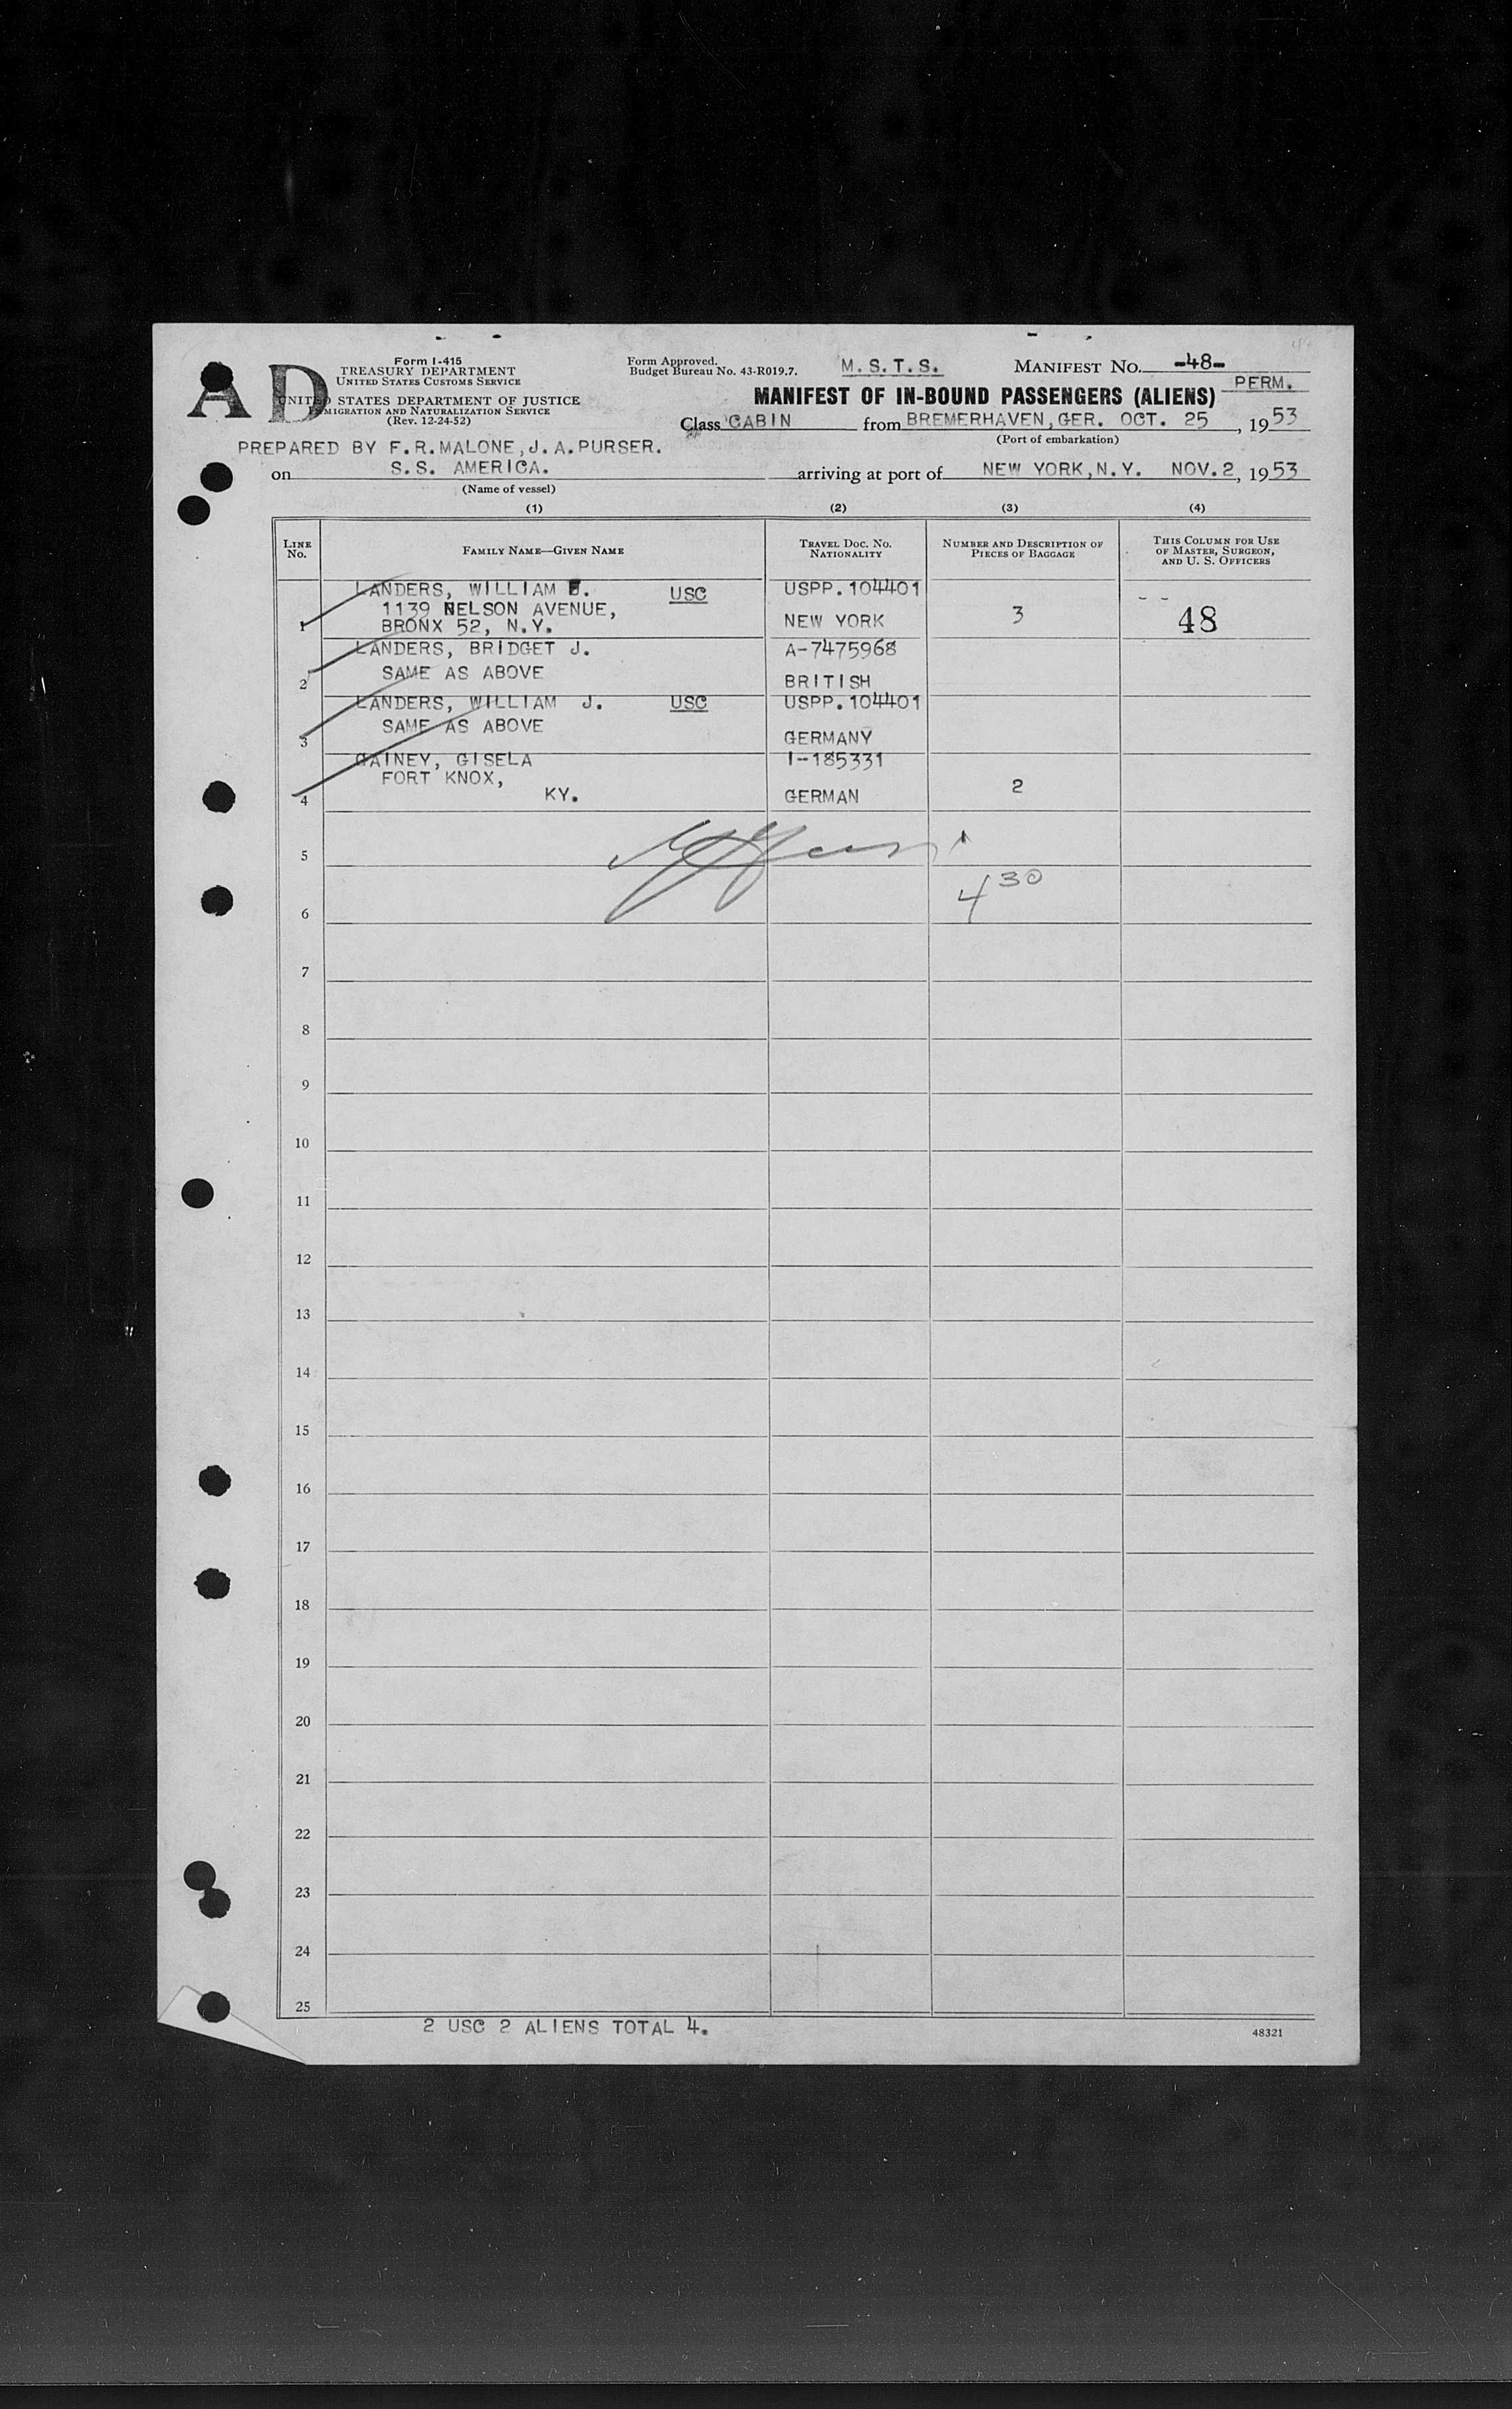 A D
Form I-415
TREASURY DEPARTMENT
UNITED STATES CUSTOMS SERVICE
UNITED STATES DEPARTMENT OF JUSTICE
IMMIGRATION AND NATURALIZATION SERVICE
(Rev. 12-24-52)
Form Approved.
Budget Bureau No. 43-R019.7.
M.S.T.S.
MANIFEST No. -48-
MANIFEST OF IN-BOUND PASSENGERS (ALIENS) PERM.
Class CABIN from BREMERHAVEN, GER. OCT. 25, 1953
(Port of embarkation)
PREPARED BY F.R.MALONE, J.A.PURSER.
on S.S. AMERICA. arriving at port of NEW YORK, N.Y. NOV.2, 1953
(Name of vessel)
(1) (2) (3) (4)
LINE No. FAMILY NAME—GIVEN NAME TRAVEL DOC. NO. NATIONALITY NUMBER AND DESCRIPTION OF PIECES OF BAGGAGE THIS COLUMN FOR USE OF MASTER, SURGEON, AND U. S. OFFICERS
LANDERS, WILLIAM USC USPP.104401
1139 NELSON AVENUE, 3 48
1 BRONX 52, N.Y. NEW YORK
LANDERS, BRIDGET J. A-7475968
SAME AS ABOVE
2 BRITISH
LANDERS, WILLIAM J. USC USPP.104401
SAME AS ABOVE
3 GERMANY
GAINEY, GISELA I-185331
FORT KNOX, 2
4 KY. GERMAN
5
4 30
6
7
8
9
10
11
12
13
14
15
16
17
18
19
20
21
22
23
24
25
2 USC 2 ALIENS TOTAL 4.
48321